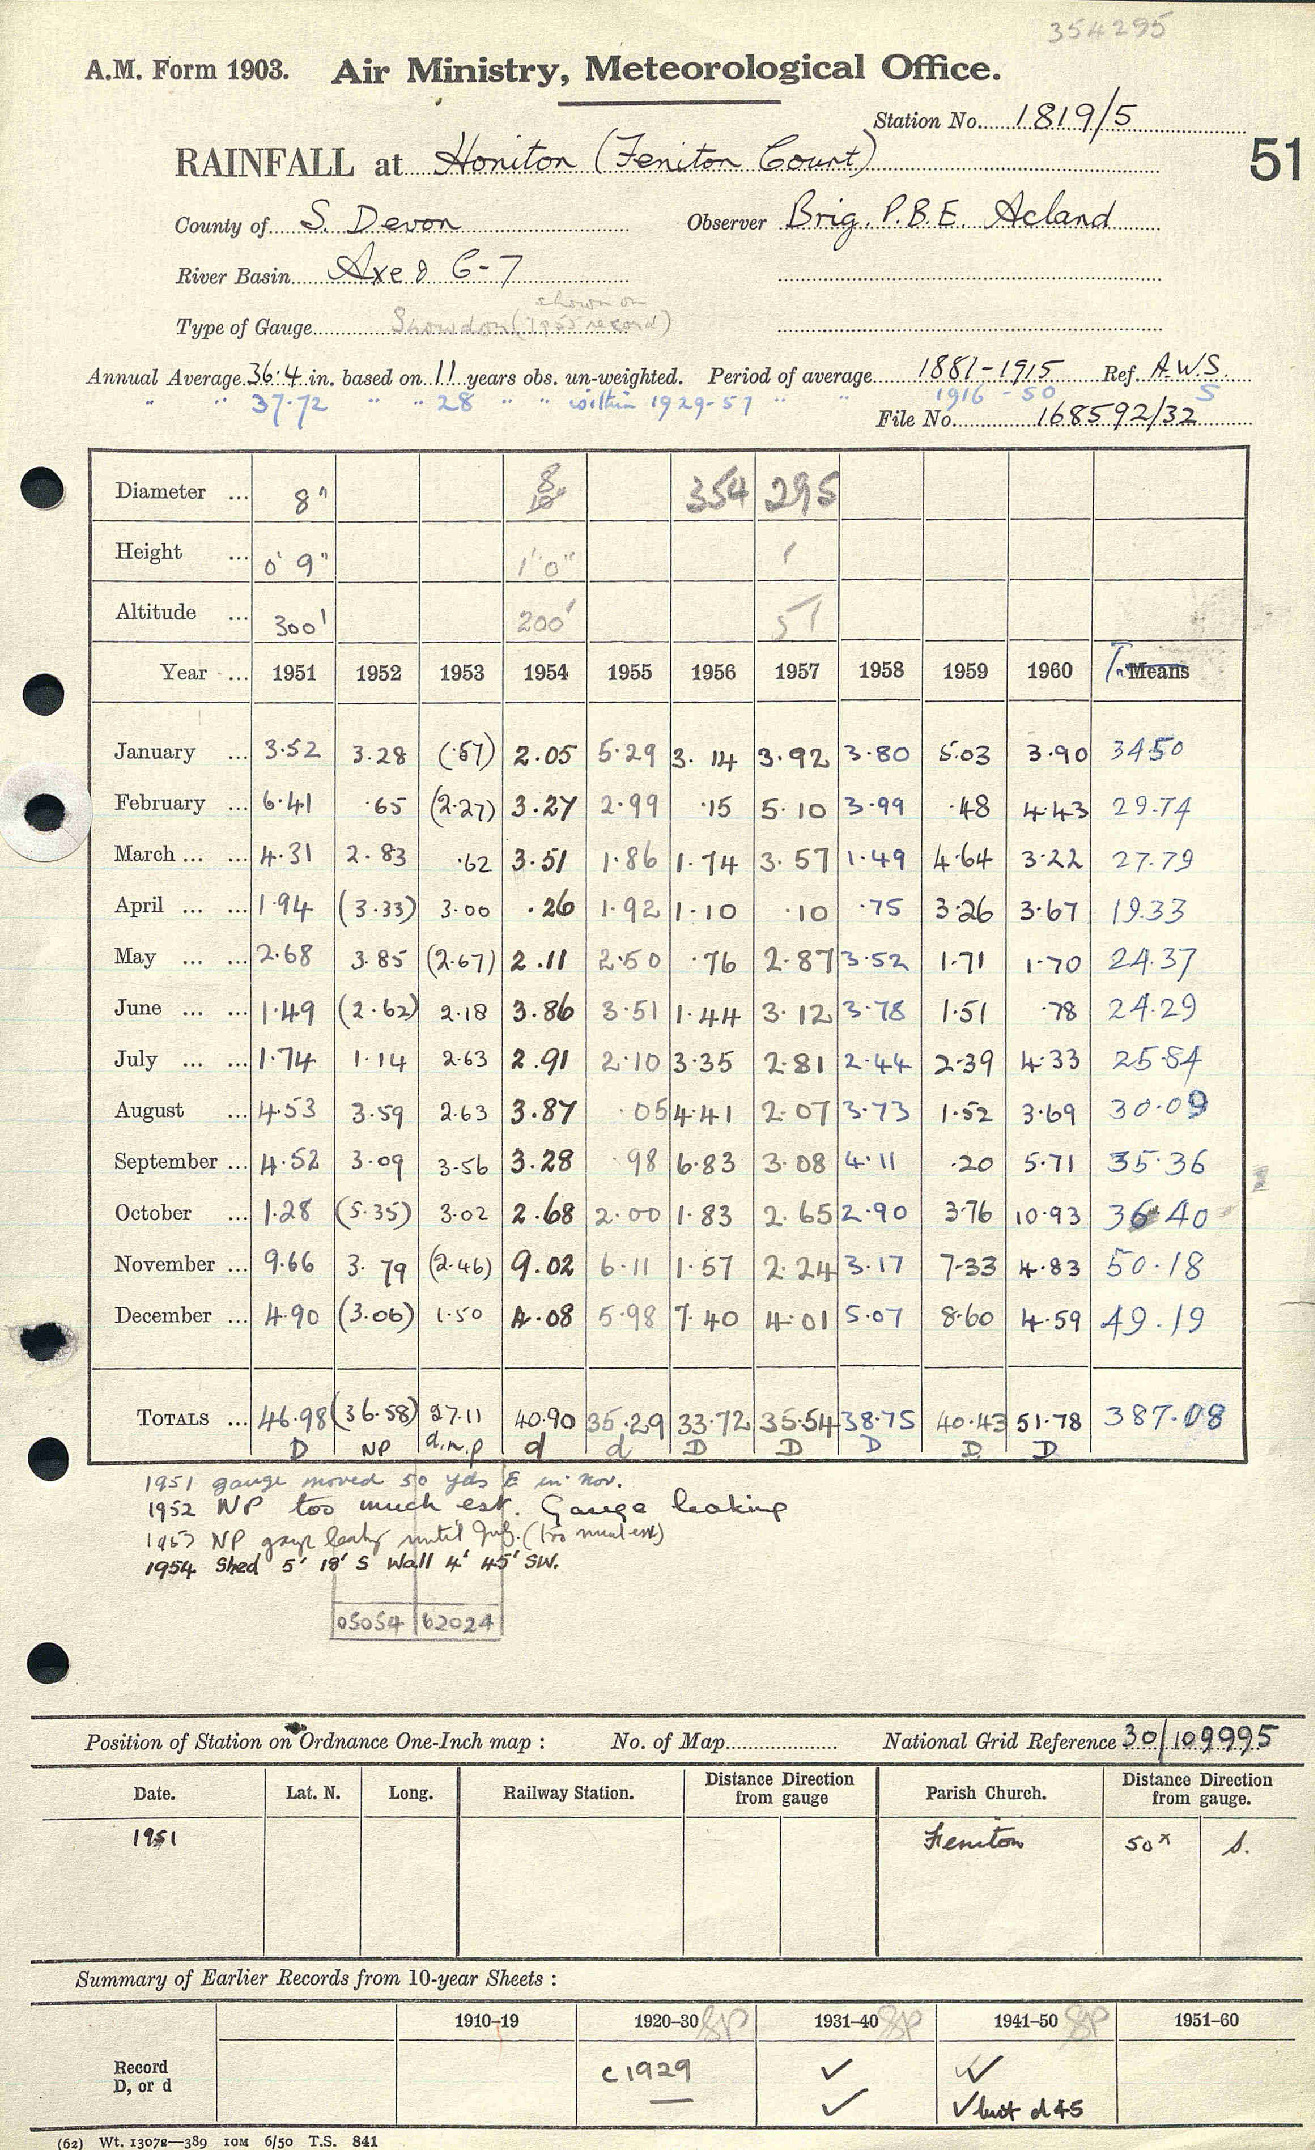 354295
A.M. Form 1903. Air Ministry, Meteorological Office.
Station No. 1819/5
51
RAINFALL at Honiton (Feniton Court)
County of S. Devon Observer Brig. P.B.E. Acland
River Basin Axe & 6-7
shown on
Type of Gauge Snowdon (1955 record)
Annual Average 36.4 in. based on 11 years obs. un-weighted. Period of average 1881-1915 Ref. A.W.S.
" " 37.72 " " 28 " " within 1929-57 " " 1916-50 S
File No. 168592/32
Diameter ... 8" 8 354 295
Height ... 0' 9" 1' 0" 1
Altitude ... 300' 200' 57
Year ... 1951 1952 1953 1954 1955 1956 1957 1958 1959 1960 T. Means
January ... 3.52 3.28 (.57) 2.05 5.29 3.14 3.92 3.80 5.03 3.90 34.50
February ... 6.41 .65 (2.27) 3.27 2.99 .15 5.10 3.99 .48 4.43 29.74
March ... ... 4.31 2.83 .62 3.51 1.86 1.74 3.57 1.49 4.64 3.22 27.79
April ... ... 1.94 (3.33) 3.00 .26 1.92 1.10 .10 .75 3.26 3.67 19.33
May ... ... 2.68 3.85 (2.67) 2.11 2.50 .76 2.87 3.52 1.71 1.70 24.37
June ... ... 1.49 (2.62) 2.18 3.86 3.51 1.44 3.12 3.78 1.51 .78 24.29
July ... ... 1.74 1.14 2.63 2.91 2.10 3.35 2.81 2.44 2.39 4.33 25.84
August ... 4.53 3.59 2.63 3.87 .05 4.41 2.07 3.73 1.52 3.69 30.09
September ... 4.52 3.09 3.56 3.28 .98 6.83 3.08 4.11 .20 5.71 35.36
October ... 1.28 (5.35) 3.02 2.68 2.00 1.83 2.65 2.90 3.76 10.93 36.40
November ... 9.66 3.79 (2.46) 9.02 6.11 1.57 2.24 3.17 7.33 4.83 50.18
December ... 4.90 (3.06) 1.50 4.08 5.98 7.40 4.01 5.07 8.60 4.59 49.19
TOTALS ... 46.98 (36.58) 27.11 40.90 35.29 33.72 35.54 38.75 40.43 51.78 387.08
D NP d.n.p d d D D D D D
1951 gauge moved 50 yds E in Nov.
1952 NP too much est. Gauge leaking
1953 NP gauge leaky until July. (too much est)
1954 Shed 5' 18' S Wall 4' 45' SW.
05054 62024
Position of Station on Ordnance One-Inch map : No. of Map National Grid Reference 30/109995
Date. Lat. N. Long. Railway Station. Distance Direction from gauge Parish Church. Distance Direction from gauge.
1951 Feniton 50x S.
Summary of Earlier Records from 10-year Sheets :
1910-19 1920-30 SP 1931-40 SP 1941-50 SP 1951-60
Record c1929 ✓ ✓
D, or d — ✓ ✓ but d 45
(62) Wt. 13072—389 10M 6/50 T.S. 841